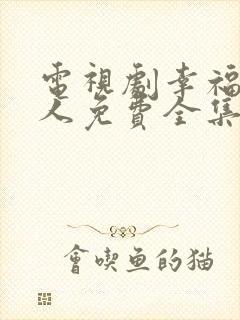 電視劇幸福
人免費全集
會喫魚的猫